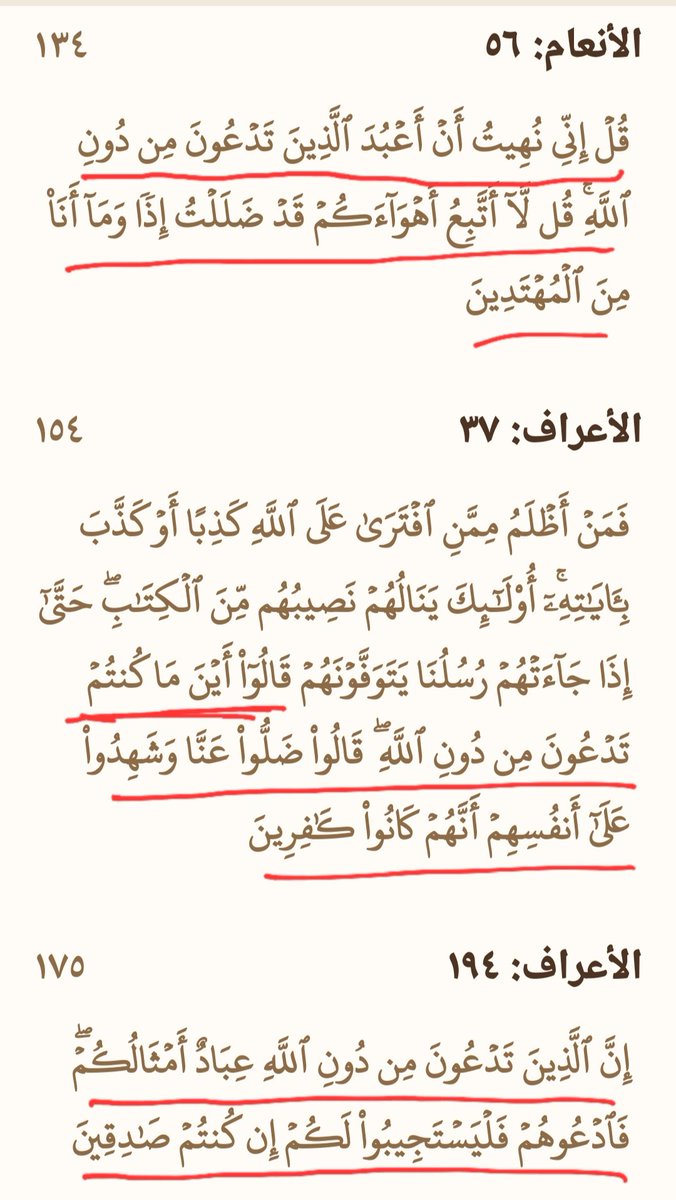 الأنعام: ٥٦ ١٣٤
قُلۡ إِنِّي نُهِيتُ أَنۡ أَعۡبُدَ ٱلَّذِينَ تَدۡعُونَ مِن دُونِ
ٱللَّهِۚ قُل لَّآ أَتَّبِعُ أَهۡوَآءَكُمۡ قَدۡ ضَلَلۡتُ إِذٗا وَمَآ أَنَا۠
مِنَ ٱلۡمُهۡتَدِينَ
الأعراف: ٣٧ ١٥٤
فَمَنۡ أَظۡلَمُ مِمَّنِ ٱفۡتَرَىٰ عَلَى ٱللَّهِ كَذِبًا أَوۡ كَذَّبَ
بِـَٔايَٰتِهِۦٓۚ أُوْلَٰٓئِكَ يَنَالُهُمۡ نَصِيبُهُم مِّنَ ٱلۡكِتَٰبِۖ حَتَّىٰٓ
إِذَا جَآءَتۡهُمۡ رُسُلُنَا يَتَوَفَّوۡنَهُمۡ قَالُوٓاْ أَيۡنَ مَا كُنتُمۡ
تَدۡعُونَ مِن دُونِ ٱللَّهِۖ قَالُواْ ضَلُّواْ عَنَّا وَشَهِدُواْ
عَلَىٰٓ أَنفُسِهِمۡ أَنَّهُمۡ كَانُواْ كَٰفِرِينَ
الأعراف: ١٩٤ ١٧٥
إِنَّ ٱلَّذِينَ تَدۡعُونَ مِن دُونِ ٱللَّهِ عِبَادٌ أَمۡثَالُكُمۡۖ
فَٱدۡعُوهُمۡ فَلۡيَسۡتَجِيبُواْ لَكُمۡ إِن كُنتُمۡ صَٰدِقِينَ